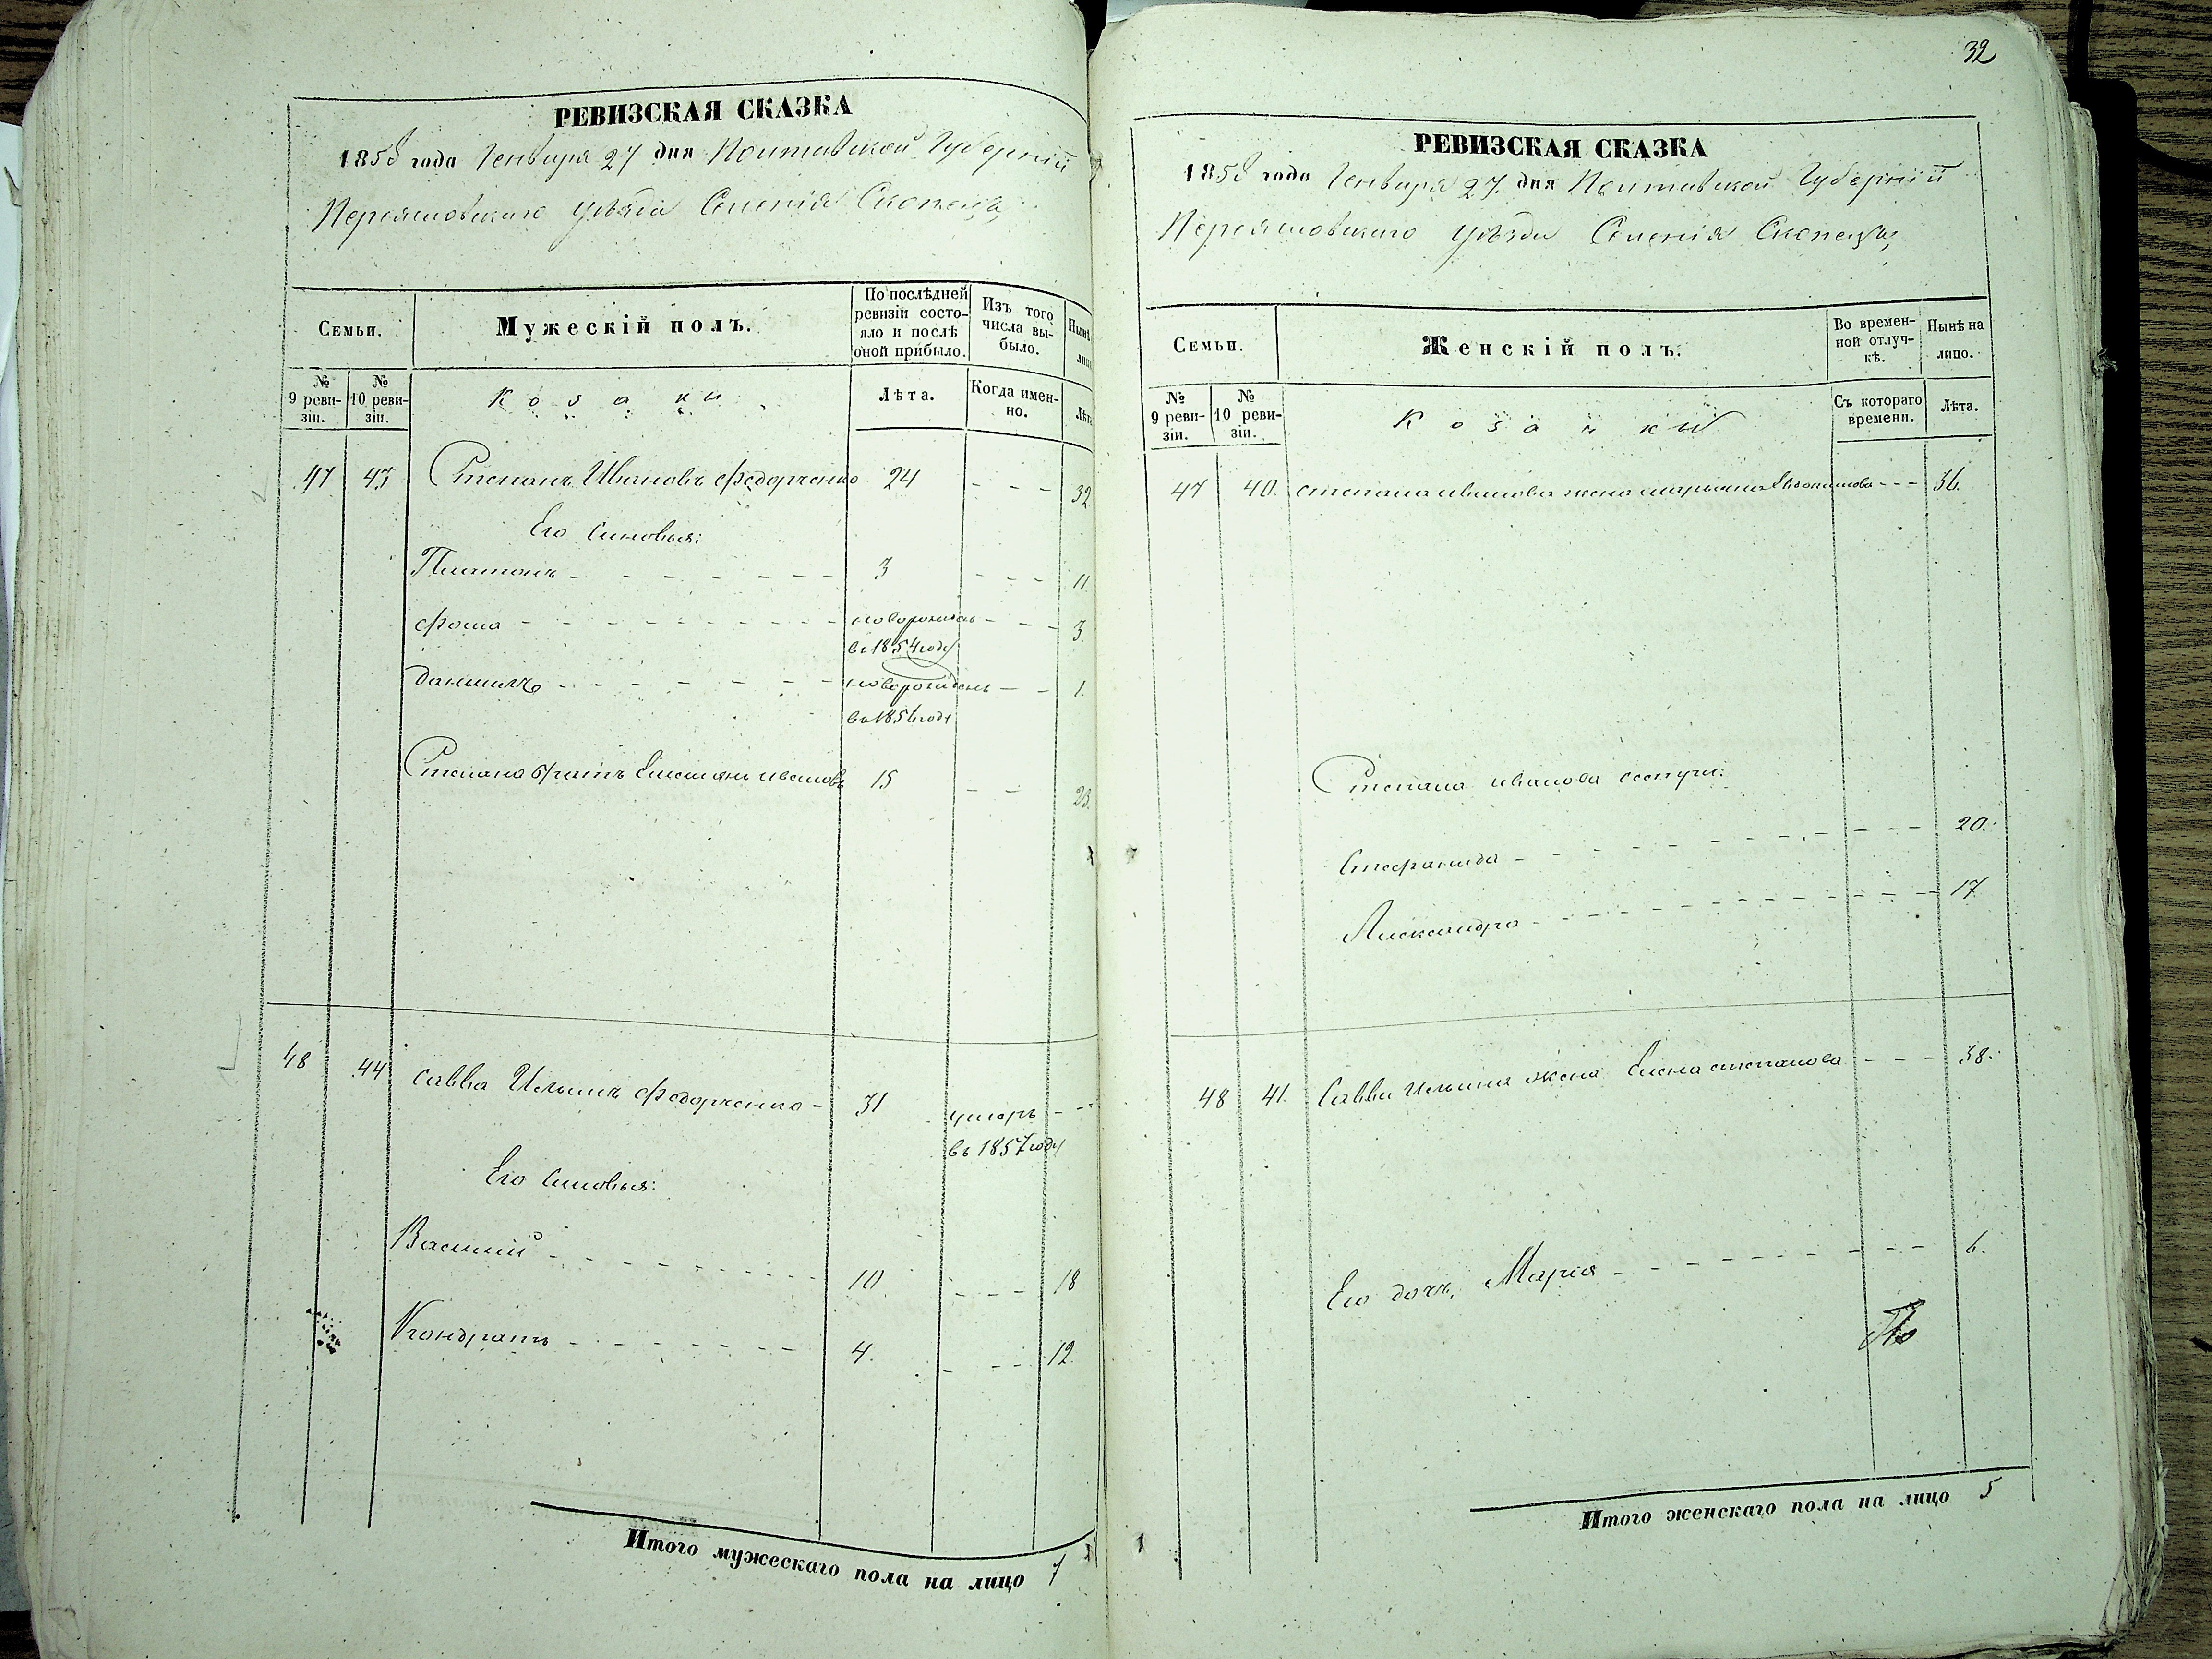 РЕВИЗСКАЯ СКАЗКА
1858 года Генваря 27 дня Полтавской Губерніи
Переяславскаго уѣзда Селенія Скопецъ
Семьи.
Мужескій полъ.
По послѣдней ревизіи состояло и послѣ оной прибыло.
Изъ того числа выбыло.
Нынѣ
лицо
№ 9 ревизіи.
№ 10 ревизіи.
Козаки
Лѣта.
Когда именно.
Лѣта
47 43 Степанъ Ивановъ Федорченко 24 - - - 32
Его Сыновья:
Платонъ - - - 3 - - - 11
Фома - - - новорожденъ - - - 3
въ 1854 году
Данiилъ - - - новорожденъ - - 1.
въ 1856 году
Степана братъ Емельянъ Ивановъ 15 - - 23.
48 44 Савва Ильинъ Федорченко - 31 умеръ - -
въ 1857 году
Его Сыновья:
Василий - - - 10 - - - 18
Кондратъ - - - 4. - - - 12.
Итого мужескаго пола на лицо 7
32
РЕВИЗСКАЯ СКАЗКА
1858 года Генваря 27 дня Полтавской Губерніи
Переяславскаго уѣзда Селенія Скопецъ
Семьи.
Женскій полъ.
Во временной отлучкѣ.
Нынѣ на лицо.
№ 9 ревизіи.
№ 10 ревизіи.
Козачки
Съ котораго времени.
Лѣта.
47 40. Степана Иванова жена Марьяна Евдокимова - - - 36.
Степана Иванова сестры:
Стефанида - - - 20.
Александра - - - 17
48 41. Саввы Ильина жена Елена Степанова - - - 38.
Его дочь, Мария - - - 6.
Итого женскаго пола на лицо 5